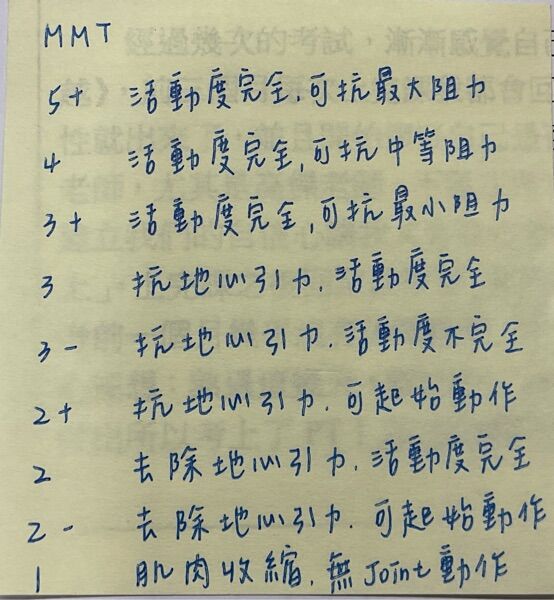 MMT
5+ 活動度完全,可抗最大阻力
4 活動度完全,可抗中等阻力
3+ 活動度完全,可抗最小阻力
3 抗地心引力,活動度完全
3- 抗地心引力,活動度不完全
2+ 抗地心引力,可起始動作
2 去除地心引力,活動度完全
2- 去除地心引力,可起始動作
1 肌肉收縮,無Joint動作